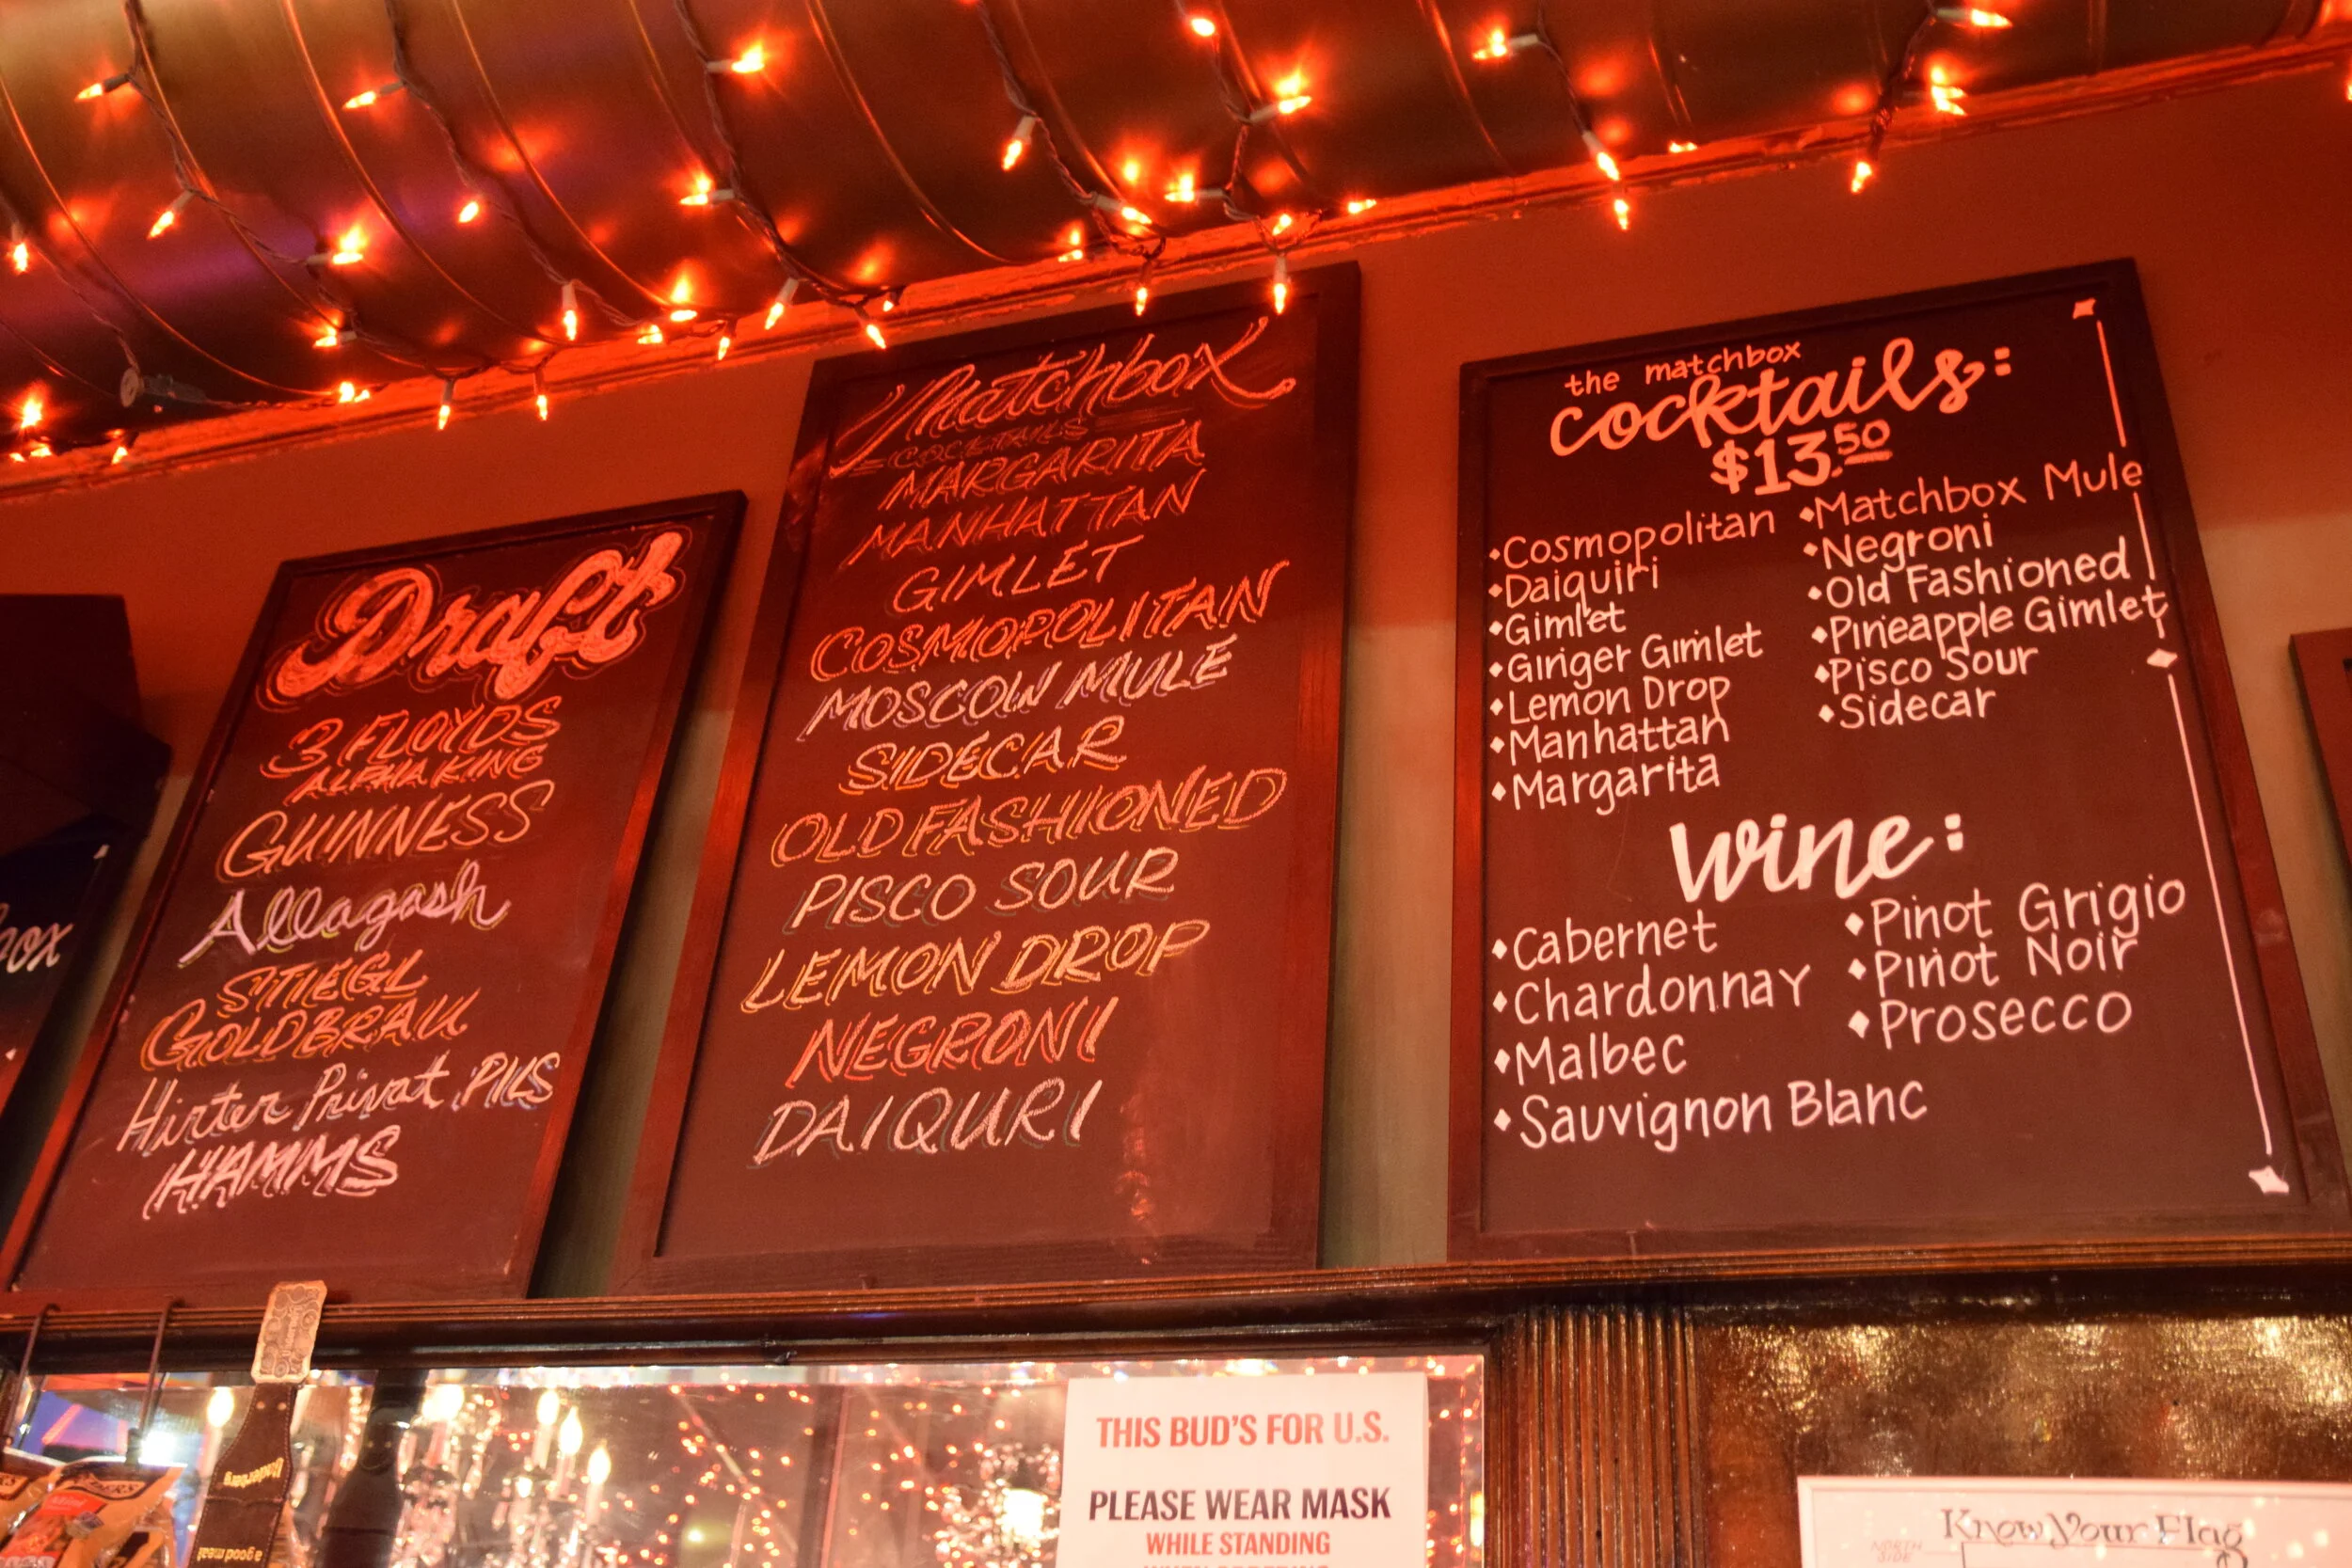 Draft
3 FLOYDS
ALPHA KING
GUINNESS
Allagash
STIEGL
GOLDBRAU
Hirter Privat PILS
HAMMS
Matchbox
COCKTAILS
MARGARITA
MANHATTAN
GIMLET
COSMOPOLITAN
MOSCOW MULE
SIDECAR
OLD FASHIONED
PISCO SOUR
LEMON DROP
NEGRONI
DAIQURI
the matchbox
cocktails:
$13.50
Cosmopolitan
Daiquiri
Gimlet
Ginger Gimlet
Lemon Drop
Manhattan
Margarita
Matchbox Mule
Negroni
Old Fashioned
Pineapple Gimlet
Pisco Sour
Sidecar
Wine:
Cabernet
Chardonnay
Malbec
Sauvignon Blanc
Pinot Grigio
Pinot Noir
Prosecco
ox
Underberg
a good meal
THIS BUD'S FOR U.S.
PLEASE WEAR MASK
WHILE STANDING
Know Your Flag
NORTH
SIDE